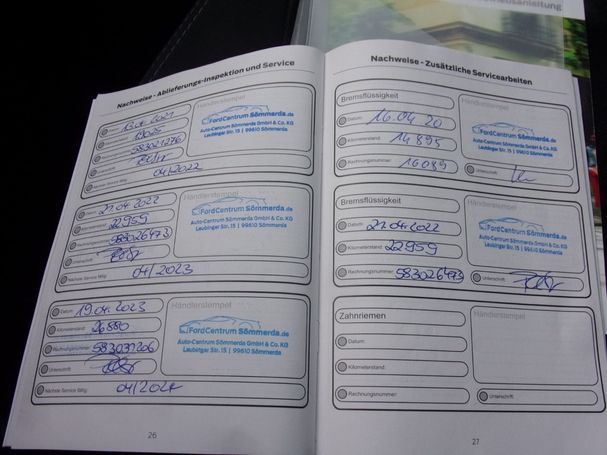 Nachweise - Ablieferungs-Inspektion und Service
Händlerstempel
Datum:
Kilometerstand:
Rechnungsnummer: 583021276
FordCentrum Sömmerda.de
Auto-Centrum Sömmerda GmbH & Co. KG
Laubinger Str. 15 | 99610 Sömmerda
Nächste Service fällig: 04/2022
Händlerstempel
Datum: 21.04.2022
Kilometerstand: 22959
Rechnungsnummer: 583026473
Unterschrift:
FordCentrum Sömmerda.de
Auto-Centrum Sömmerda GmbH & Co. KG
Laubinger Str. 15 | 99610 Sömmerda
Nächste Service fällig: 04/2023
Händlerstempel
Datum: 19.04.2023
Kilometerstand: 26880
Rechnungsnummer: 583031206
Unterschrift:
FordCentrum Sömmerda.de
Auto-Centrum Sömmerda GmbH & Co. KG
Laubinger Str. 15 | 99610 Sömmerda
Nächste Service fällig: 04/2024
26
Nachweise - Zusätzliche Servicearbeiten
Bremsflüssigkeit
Händlerstempel
Datum: 16.04.20
Kilometerstand: 14895
Rechnungsnummer: 16089
Unterschrift:
FordCentrum Sömmerda.de
Auto-Centrum Sömmerda GmbH & Co. KG
Laubinger Str. 15 | 99610 Sömmerda
Bremsflüssigkeit
Händlerstempel
Datum: 21.04.2022
Kilometerstand: 22959
Rechnungsnummer: 583026473
Unterschrift:
FordCentrum Sömmerda.de
Auto-Centrum Sömmerda GmbH & Co. KG
Laubinger Str. 15 | 99610 Sömmerda
Zahnriemen
Händlerstempel
Datum:
Kilometerstand:
Rechnungsnummer:
Unterschrift:
27